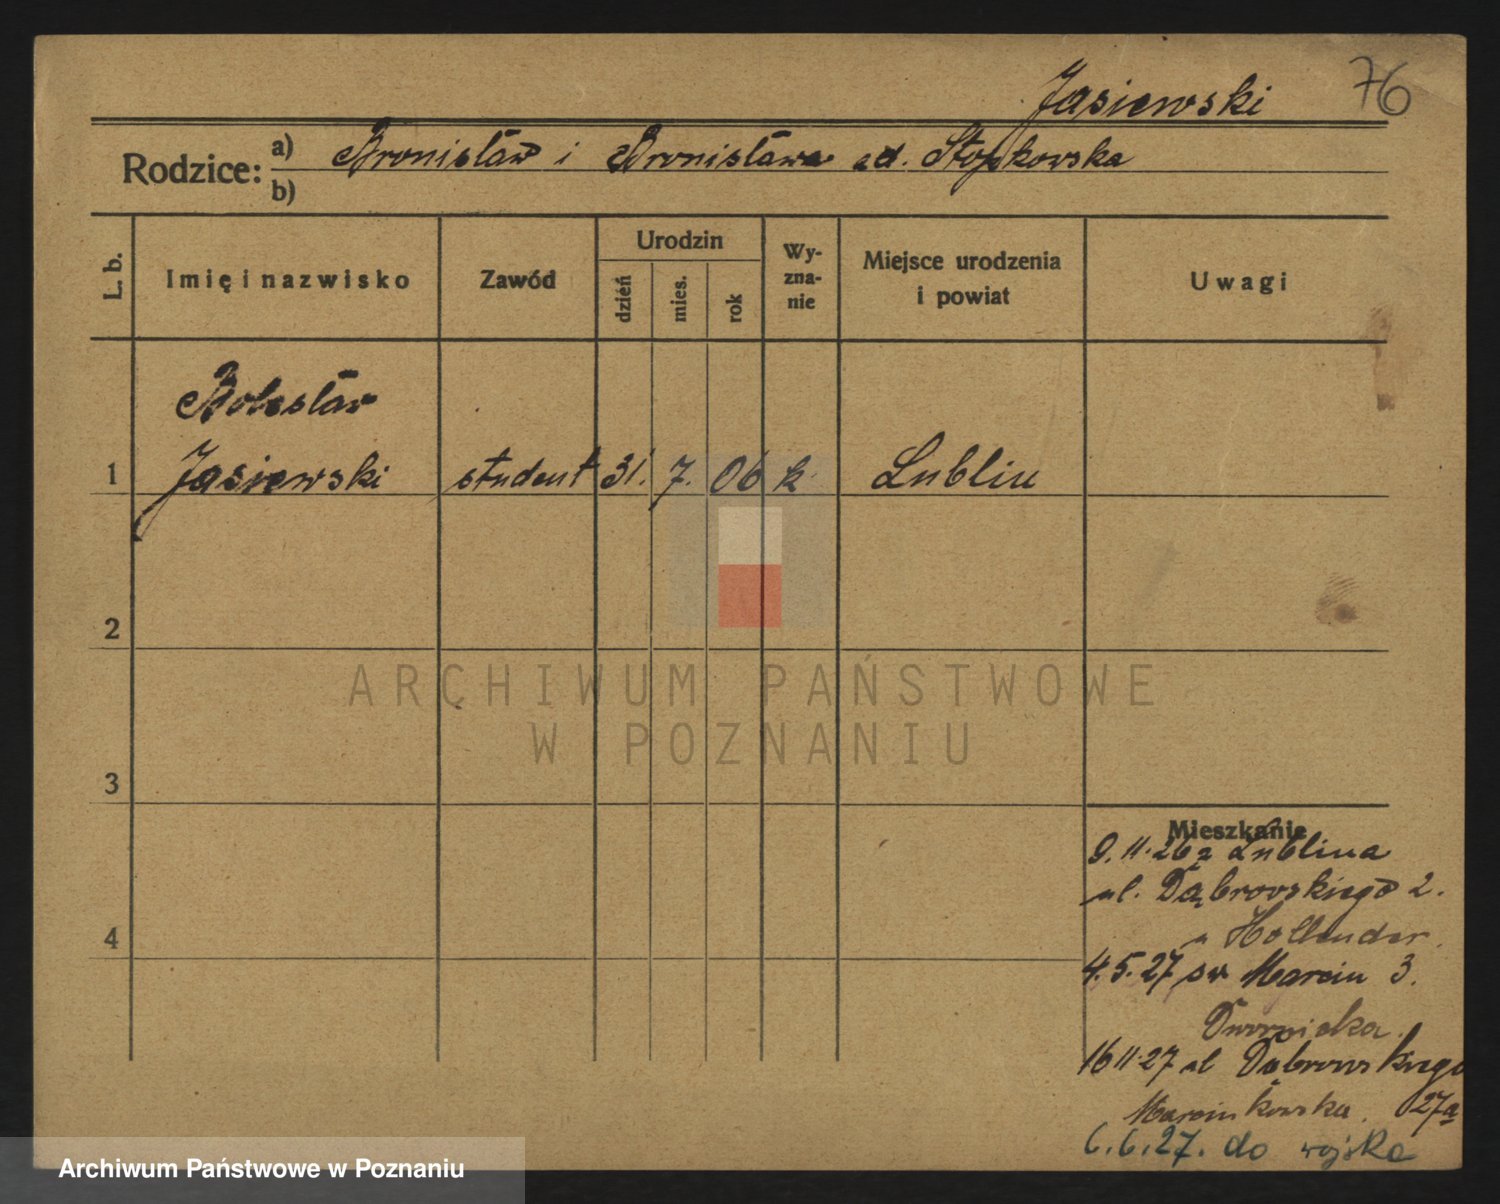 Jasiewski 76
Rodzice: a) Bronisław i Bronisława zd. Stopkowska
b)
L. b. Imię i nazwisko Zawód Urodzin dzień mies. rok Wy-zna-nie Miejsce urodzenia i powiat Uwagi
Bolesław
1 Jasiewski student 31. 7. 06 k Lublin
2
3
4
Mieszkanie
9.11.26 z Lublina
ul. Dąbrowskiego 2.
u Hollender.
4.5.27 św Marcin 3.
Dwornicka.
16 11.27 ul Dąbrowskiego
Marcinkowska. 27a
6.6.27. do wojska
ARCHIWUM PAŃSTWOWE
W POZNANIU
Archiwum Państwowe w Poznaniu